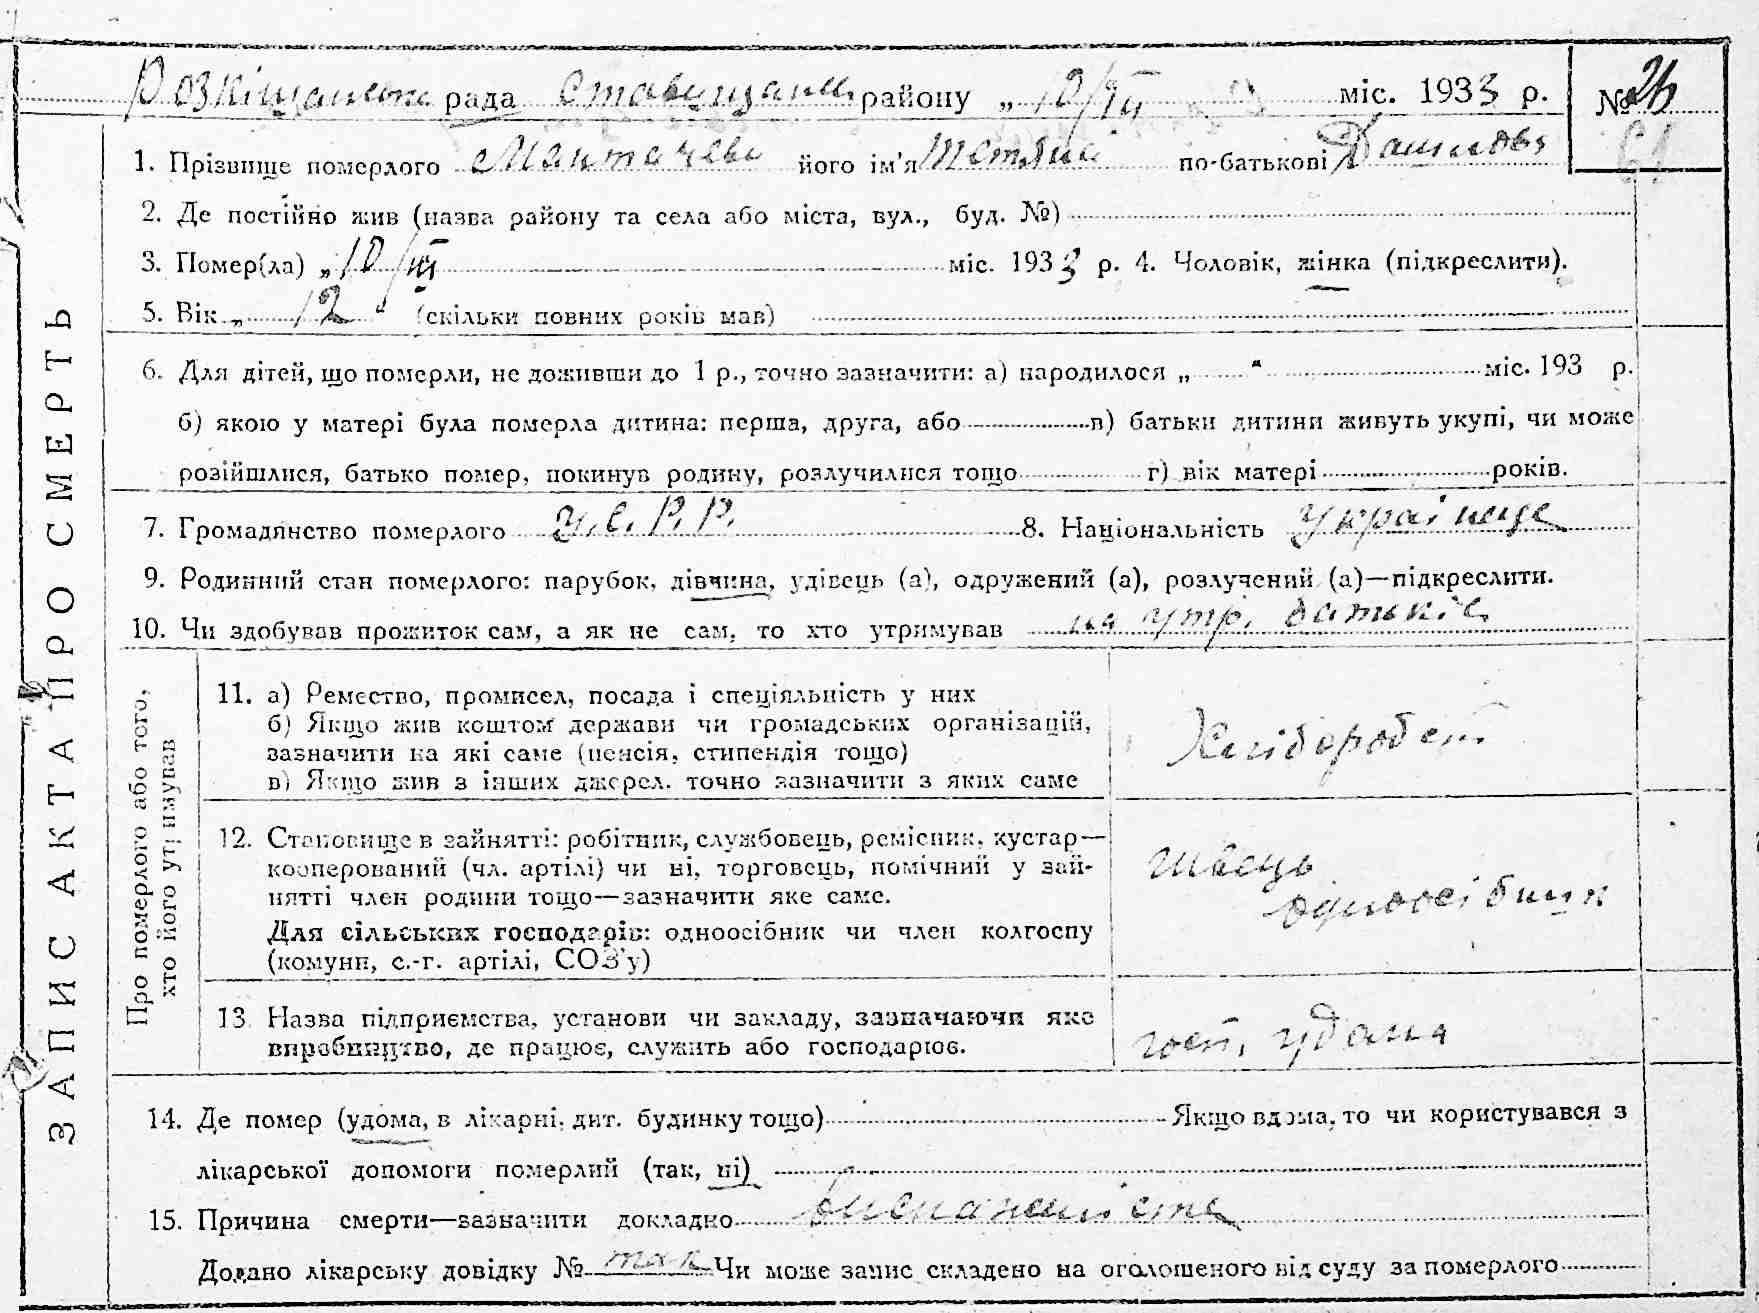 Розкішанська рада Ставищанськ району „ 10/III міс. 1933 р. № 26
61
1. Прізвище померлого його ім'я Тетяна по-батькові
2. Де постійно жив (назва району та села або міста, вул., буд. №)
3. Помер(ла) „ 10/III міс. 1933 р. 4. Чоловік, жінка (підкреслити).
5. Вік „ 12 " (скільки повних років мав)
6. Для дітей, що померли, не доживши до 1 р., точно зазначити: а) народилося „ " міс. 193 р.
б) якою у матері була померла дитина: перша, друга, або в) батьки дитини живуть укупі, чи може
розійшлися, батько помер, покинув родину, розлучилися тощо г) вік матері років.
7. Громадянство померлого У.С.Р.Р. 8. Національність Українце
9. Родинний стан померлого: парубок, дівчина, удівець (а), одружений (а), розлучений (а)—підкреслити.
10. Чи здобував прожиток сам, а як не сам, то хто утримував на утр. батьків
ЗАПИС АКТА ПРО СМЕРТЬ
Про померлого або того,
хто його утримував
11. а) Ремество, промисел, посада і спеціяльність у них
б) Якщо жив коштом держави чи громадських організацій,
зазначити на які саме (пенсія, стипендія тощо)
в) Якщо жив з інших джерел, точно зазначити з яких саме
Хлібороб
12. Становище в зайнятті: робітник, службовець, ремісник, кустар—
кооперований (чл. артілі) чи ні, торговець, помічний у зай-
нятті член родини тощо—зазначити яке саме.
Для сільських господарів: одноосібник чи член колгоспу
(комуни, с.-г. артілі, СОЗ'у)
швець
одноосібник
13. Назва підприємства, установи чи закладу, зазначаючи яке
виробництво, де працює, служить або господарює.
госп. удома
14. Де помер (удома, в лікарні, дит. будинку тощо) Якщо вдома, то чи користувався з
лікарської допомоги померлий (так, ні)
15. Причина смерти—зазначити докладно
Додано лікарську довідку № так Чи може запис складено на оголошеного від суду за померлого